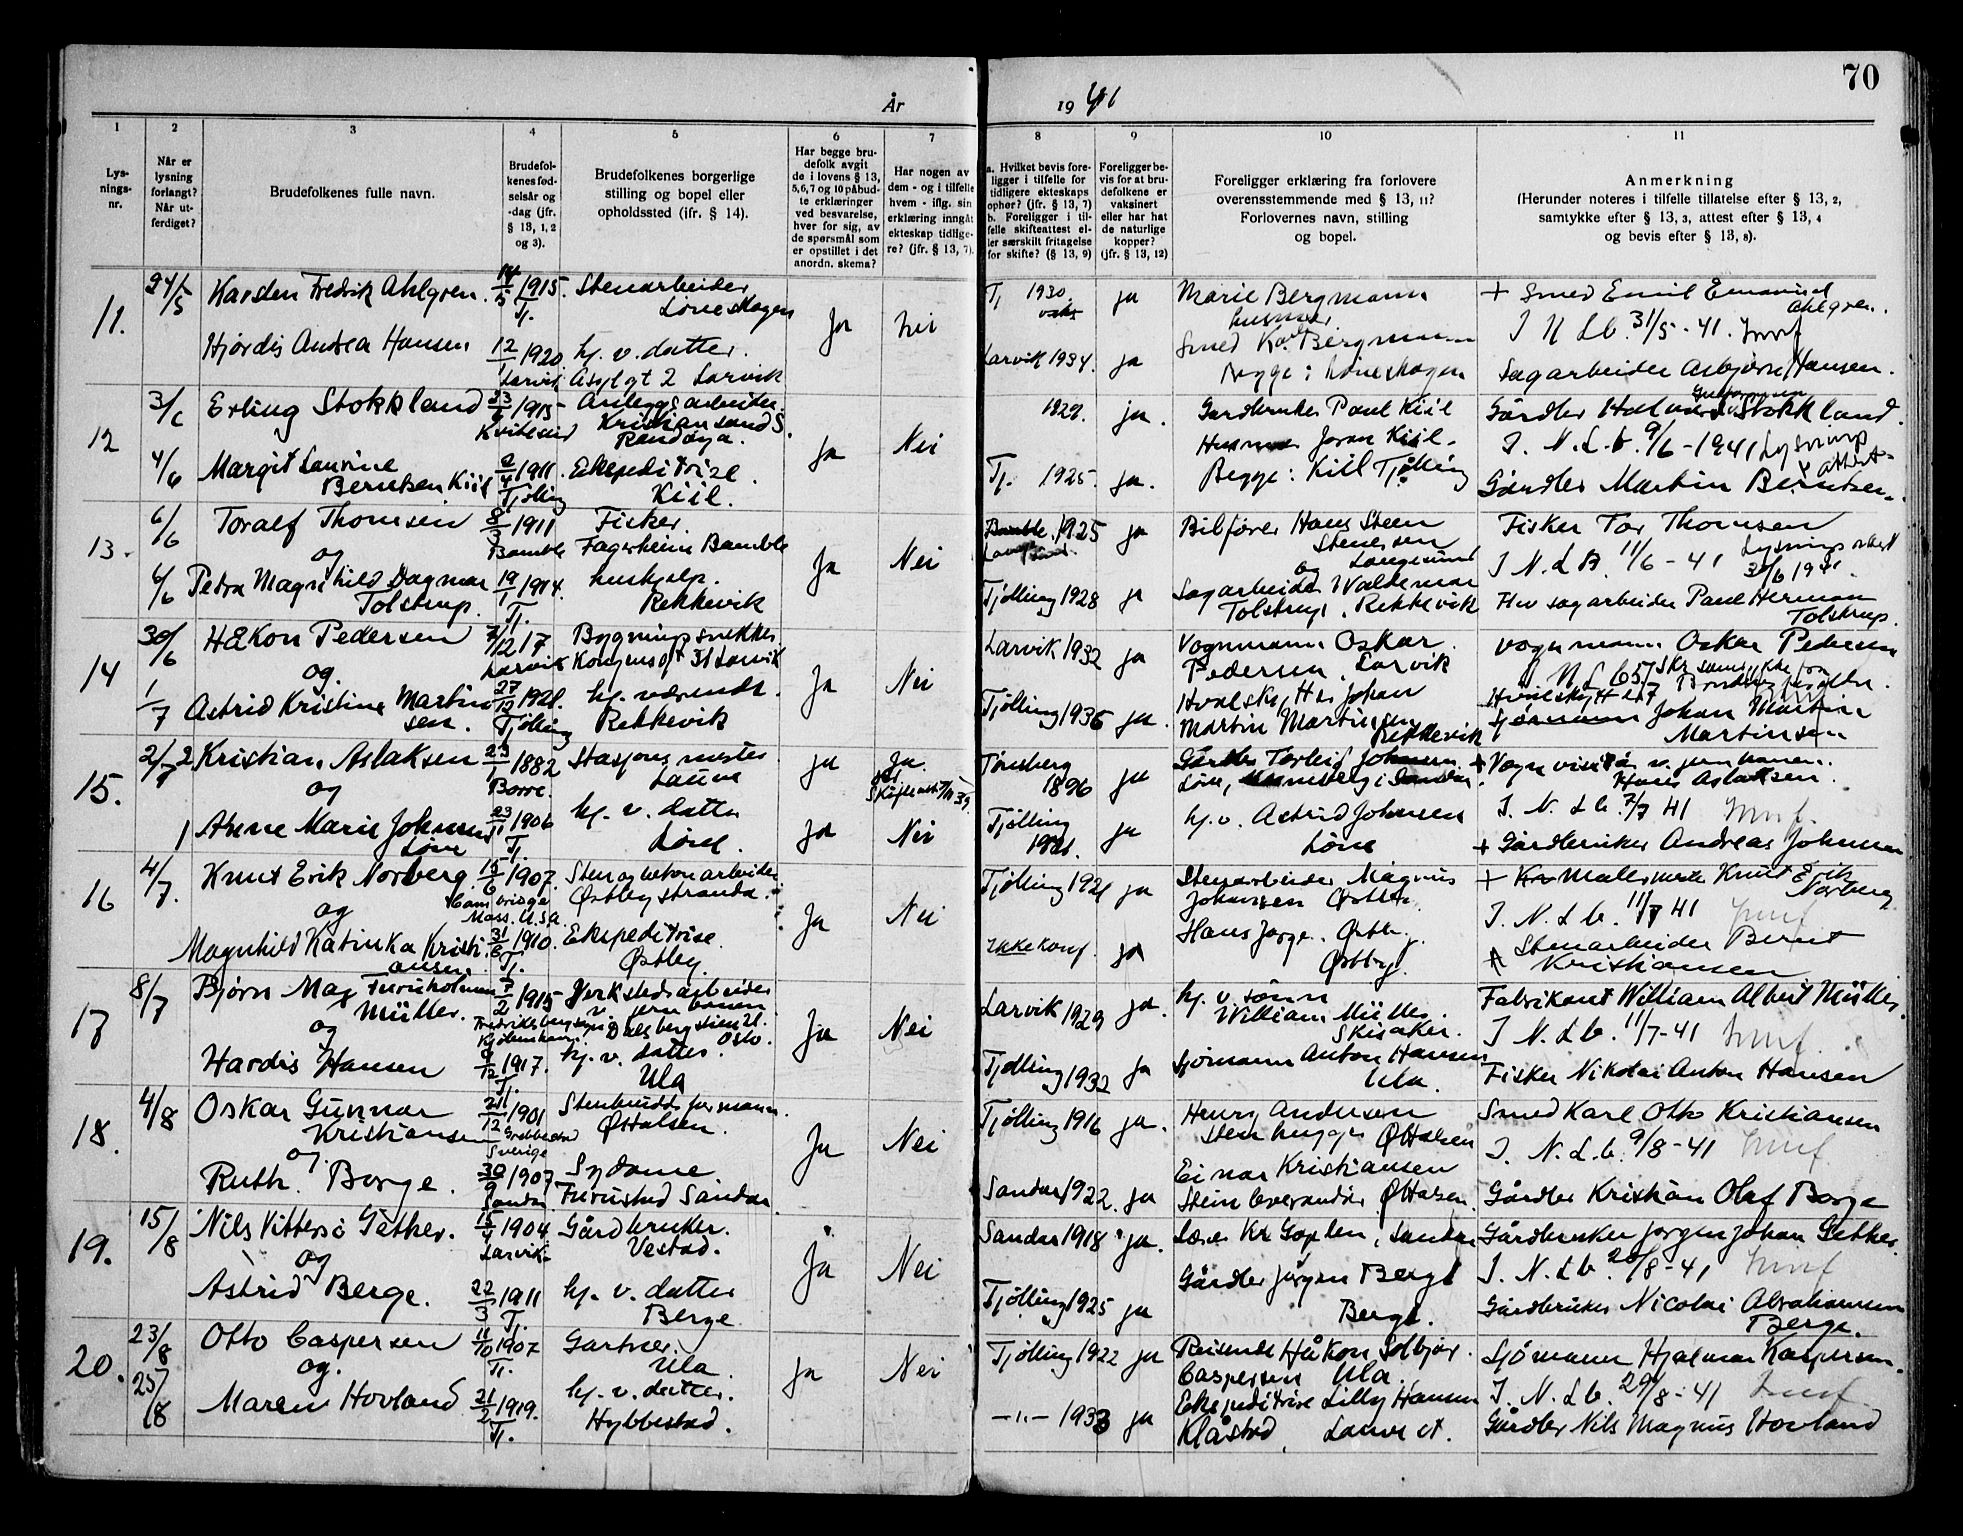 70
År
19 41
1
2
3
4
5
6
7
8
9
10
11
Lys-
nings-
nr.
Når er
lysning
forlangt?
Når ut-
ferdiget?
Brudefolkenes fulle navn.
Brudefol-
kenes fød-
selsår og
-dag (jfr.
§ 13, 1, 2
og 3).
Brudefolkenes borgerlige
stilling og bopel eller
opholdssted (ifr. § 14).
Har begge bru-
defolk avgit
de i lovens § 13,
5,6,7 og 10 påbud-
te erklæringer
ved besvarelse,
hver for sig, av
de spørsmål som
er opstillet i det
anordn. skema?
Har nogen av
dem - og i tilfelle
hvem - iflg. sin
erklæring inngått
ekteskap tidlige-
re? (jfr. § 13, 7).
a. Hvilket bevis fore-
ligger i tilfelle for
tidligere ekteskaps
ophør? (jfr. § 13, 7)
b. Foreligger i til-
felle skifteattest el-
ler særskilt fritagelse
for skifte? (§ 13, 9)
Foreligger be-
vis for at bru-
defolkene er
vaksinert
eller har hat
de naturlige
kopper?
(jfr. § 13, 12)
Foreligger erklæring fra forlovere
overensstemmende med § 13, 11?
Forlovernes navn, stilling
og bopel.
Anmerkning
(Herunder noteres i tilfelle tillatelse efter § 13, 2,
samtykke efter § 13, 3, attest efter § 13, 4
og bevis efter § 13, 8).
11.
Karsten Fredrik Ahlgren.
1915.
Tj.
Stenarbeider
Løveskogen
Ja
Nei
Tj. 1930
ja
Marie Bergmann
husmor
+ Smed Emil Emanuel
Ahlgren.
I N Lb. 31/5 - 41.
Hjørdis Andrea Hansen
12/1 1920
Larvik
hj. v. datter.
Asylgt 2 Larvik
Larvik 1934.
ja
Smed Karl Bergmann
Begge: Løveskogen
Sagarbeider Asbjørn Hansen.
12
3/6
Erling Stokkland
23/6 1915
Kviteseid
Anleggsarbeider.
Kristiansand S.
Randøya.
Ja
Nei
1929.
ja.
Gardbruker Paul Kiil
Husmor Joran Kiil.
Begge: Kiil Tjølling
Gårdbr Halvord Stokkland.
I. N. L. b. 9/6 - 1941 Lysning
attest
4/6
Margit Laurine
Berntsen, Kiil
2/4 1911.
Tjølling
Ekspeditrise.
Kiil.
Tj. 1925.
ja.
Gårdbr Martin Berntsen.
13.
6/6
Toralf Thomsen
og
8/3 1911
Bamble
Fisker.
Fagerheim Bamble
Ja
Nei
1925
ja
Bilfører Hans Steen
Stenersen
Langesund
og
Fisker Tor Thomsen
I N. L B. 11/6 - 41
6/6
Petra Magnhild Dagmar
Tolstrup.
19/1 1914.
Tj.
hushjelp.
Rekkevik
Tjølling 1928
ja
Sagarbeider Waldemar
Tolstrup, Rekkevik
Hv sagarbeider Paul Herman
Tolstrup.
14
30/6
Håkon Pedersen
og.
7/12 17
Larvik
Bygningssnekker
Kongensgt 31 Larvik
Ja
Nei
Larvik 1932
ja
Vognmann Oskar
Pedersen, Larvik
Vognmann Oskar Pedersen
1/7
Astrid Kristine Martin
sen.
27/12 1921.
Tjølling
hj. værende.
Rekkevik
Tjølling 1936
ja.
Johan
Martin Martinsen
Rekkevik
Johan Martin
Martinsen
15.
2/7
Kristian Aslaksen
og
23/1 1882
Borre.
Stasjonsmester
Lauve
ja
Ja.
Tønsberg
1896
ja
+ Vognvisitør v. jernbanen.
Hans Aslaksen.
I. N. L b. 7/7 41
Anne Marie Johnsen
Løve
23/11 1906
Tj.
hj. v. datter
Løve.
ja
Nei
Tjølling
1921.
ja
hj. v. Astrid Johnsen
Løve
+ Gårdbruker Andreas Johnsen
16
4/7.
Knut Erik Norberg.
og
15/6 1907.
Cambridge
Mass. U.S.A.
Sten og betonarbeider
Østbystranda.
Ja
Nei
Tjølling 1921
ja
Stenarbeider Magnus
Johansen Østby.
+ Malermester Knut Erik
Norberg
I. N. L b. 11/7 41
Magnhild Katinka Kristi
ansen.
31/6 1910.
Tj.
Ekspeditrise.
Østby.
Ikke konf.
ja
Østby.
Stenarbeider Bernt
Kristiansen
17
8/7
Bjørn Mag Furuholmen
Müller.
og
7/2 1915
Verkstedarbeider
v jernbanen
Oslo.
Ja
Nei
Larvik 1929
ja.
hj. v. sønn
William Müller
Skisaker.
Fabrikant William Albert Müller.
I N. L b. 11/7-41
Hardis Hansen
9/12 1917.
Tj.
hj. v. datter.
Ula
Tjølling 1932
ja
Sjømann Anton Hansen
Ula.
Fisker Nikolai Anton Hansen
18.
4/8
Oskar Gunnar
Kristiansen
og.
21/12 1901
Grebbestad
Sverige
Stenhuddsformann.
Øttalsen.
Ja
Nei
Tjølling 1916
ja.
Henry Andersen
Stenhugger Øttalsen
Smed Karl Otto Kristiansen
I. N. L. b. 9/8 - 41
Ruth Borge.
30/9 1907
Sandar
Sydame
Furustad Sandar
Sandar 1922.
ja
Einar Kristiansen
Stein leverandør Øttalsen.
Gårdbr Kristian Olaf Borge
19.
15/8
Nils Vittersø Gether.
og
15/4 1904
Larvik
Gårdbruker.
Vestad.
Ja
Nei
Sandar 1918
ja.
Lærer Kr Goplen, Sandar
Gårdbruker Jørgen Johan Gether.
I. N. L b. 20/8 - 41
Astrid Berge.
22/3 1911
Tj.
hj. v. datter
Berge
Tjølling 1925
ja
Gårdbr Jørgen Berge
Berge.
Gårdbruker Nicolai Abrahamsen
Berge.
20.
23/8
Otto Caspersen
og.
11/10 1907
Tj.
Gartner.
Ula.
Ja
Nei
Tjølling 1922
ja
Reisende Håkon Solbjør
Caspersen Ula.
Sjømann Hjalmar Kaspersen.
I. N. L b. 29/8 - 41
25/8
Maren Hovland
21/2 1919.
Tj.
hj. v. datter.
Hybbestad.
—"— 1933
ja
Ekspeditrise Lilly Hansen
Klåstad, Lauve st.
Gårdbr Nils Magnus Hovland